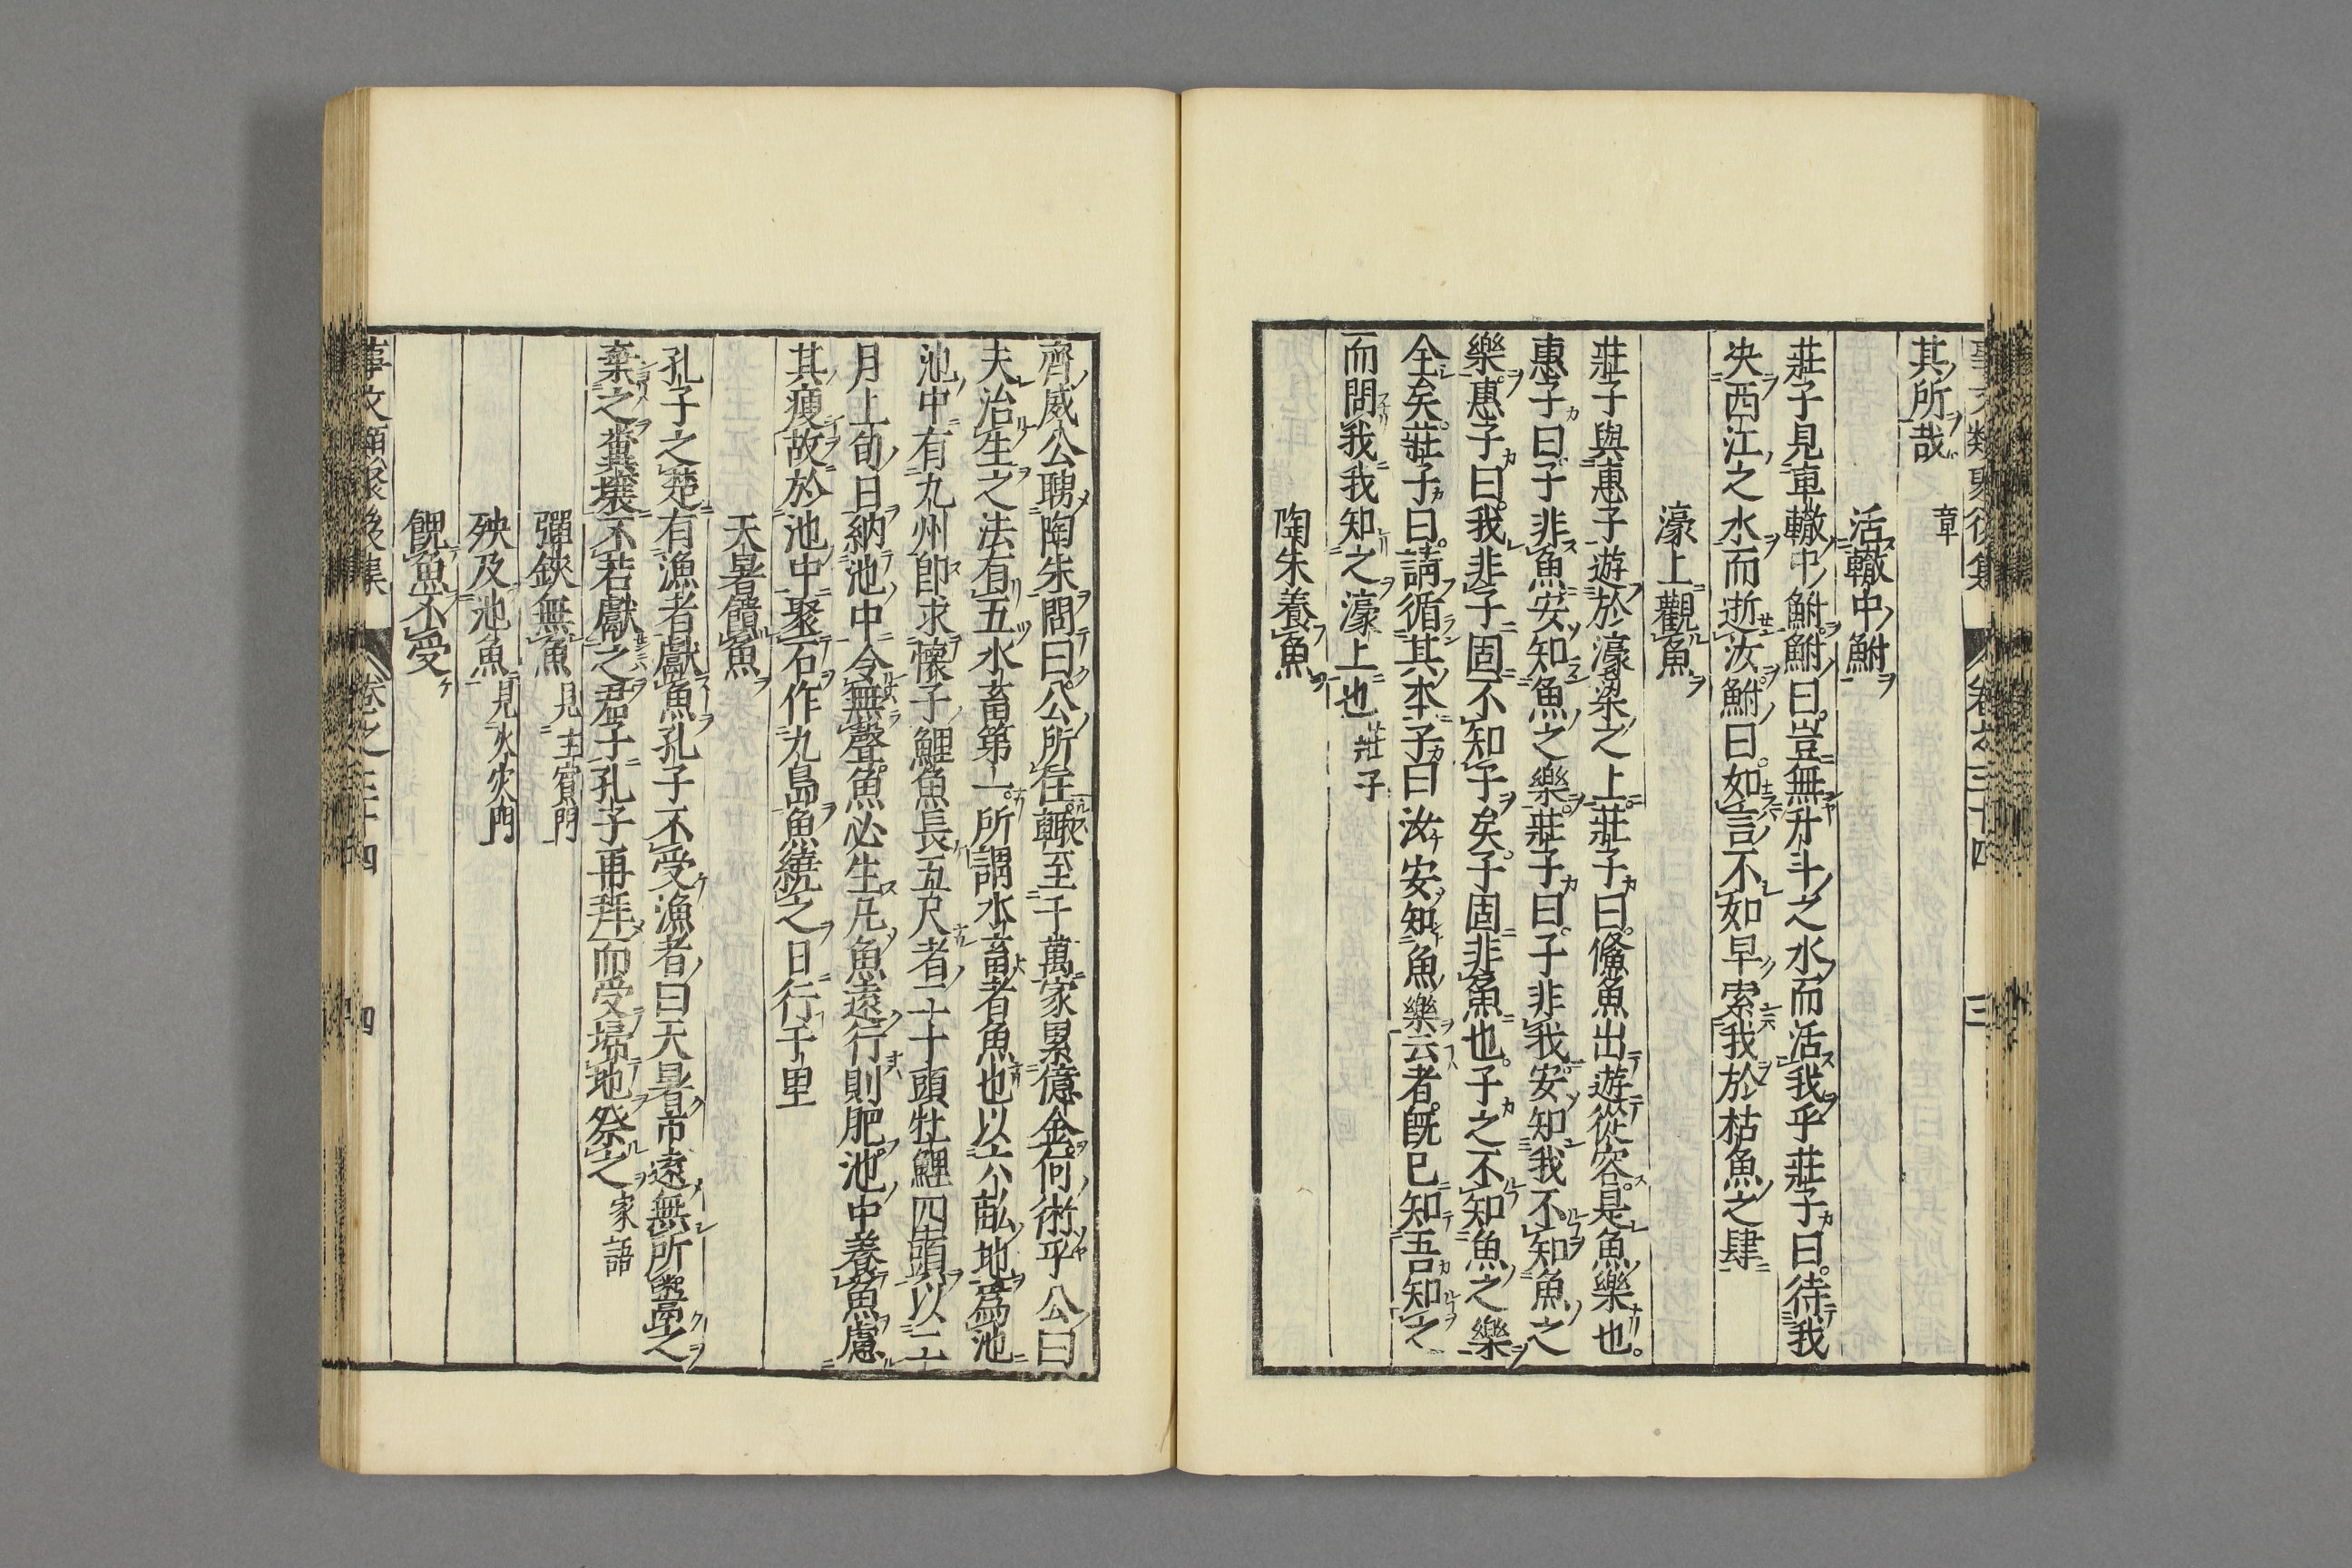 事文類聚後集 卷之三十四 三
其所哉 章
活轍中鮒
莊子見車轍中鮒鮒曰豈無升斗之水而活我乎莊子曰待我
决西江之水而逝汝鮒曰如言不如早索我於枯魚之肆
濠上觀魚
莊子與惠子遊於濠梁之上莊子曰鯈魚出遊從容是魚樂也
惠子曰子非魚安知魚之樂莊子曰子非我安知我不知魚之
樂惠子曰我非子固不知子矣子固非魚也子之不知魚之樂
全矣莊子曰請循其本子曰汝安知魚樂云者既已知吾知之
而問我我知之濠上也 莊子
陶朱養魚
齊威公聘陶朱問曰公所在輙至千萬家累億金何術乎公曰
夫治生之法有五水畜第一所謂水畜者魚也以六畝地爲池
池中有九州卽求懷子鯉魚長五尺者二十頭牡鯉四頭以二
月上旬日納池中令無聲魚必生凡魚遠行則肥池中養魚慮
其瘦故於池中聚石作九島魚繞之日行千里
天暑饋魚
孔子之楚有漁者獻魚孔子不受漁者曰天暑市遠無所鬻之
棄之糞壤不若獻之君子孔子再拜而受掃地祭之 家語
彈鋏無魚 見主賓門
殃及池魚 見火災門
餽魚不受
事文類聚後集 卷之三十四 四